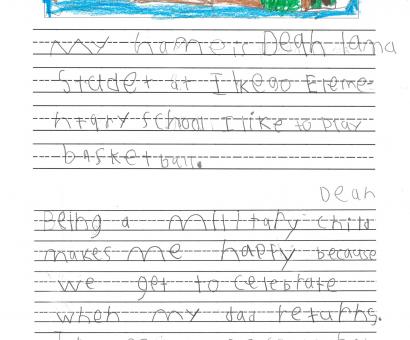 My name is Deah I am a
Studet at Ikego Eleme-
ntary School. I like to play
basketball.
Deah
Being a military child
makes me happy because
we get to celebrate
when my dad returns.